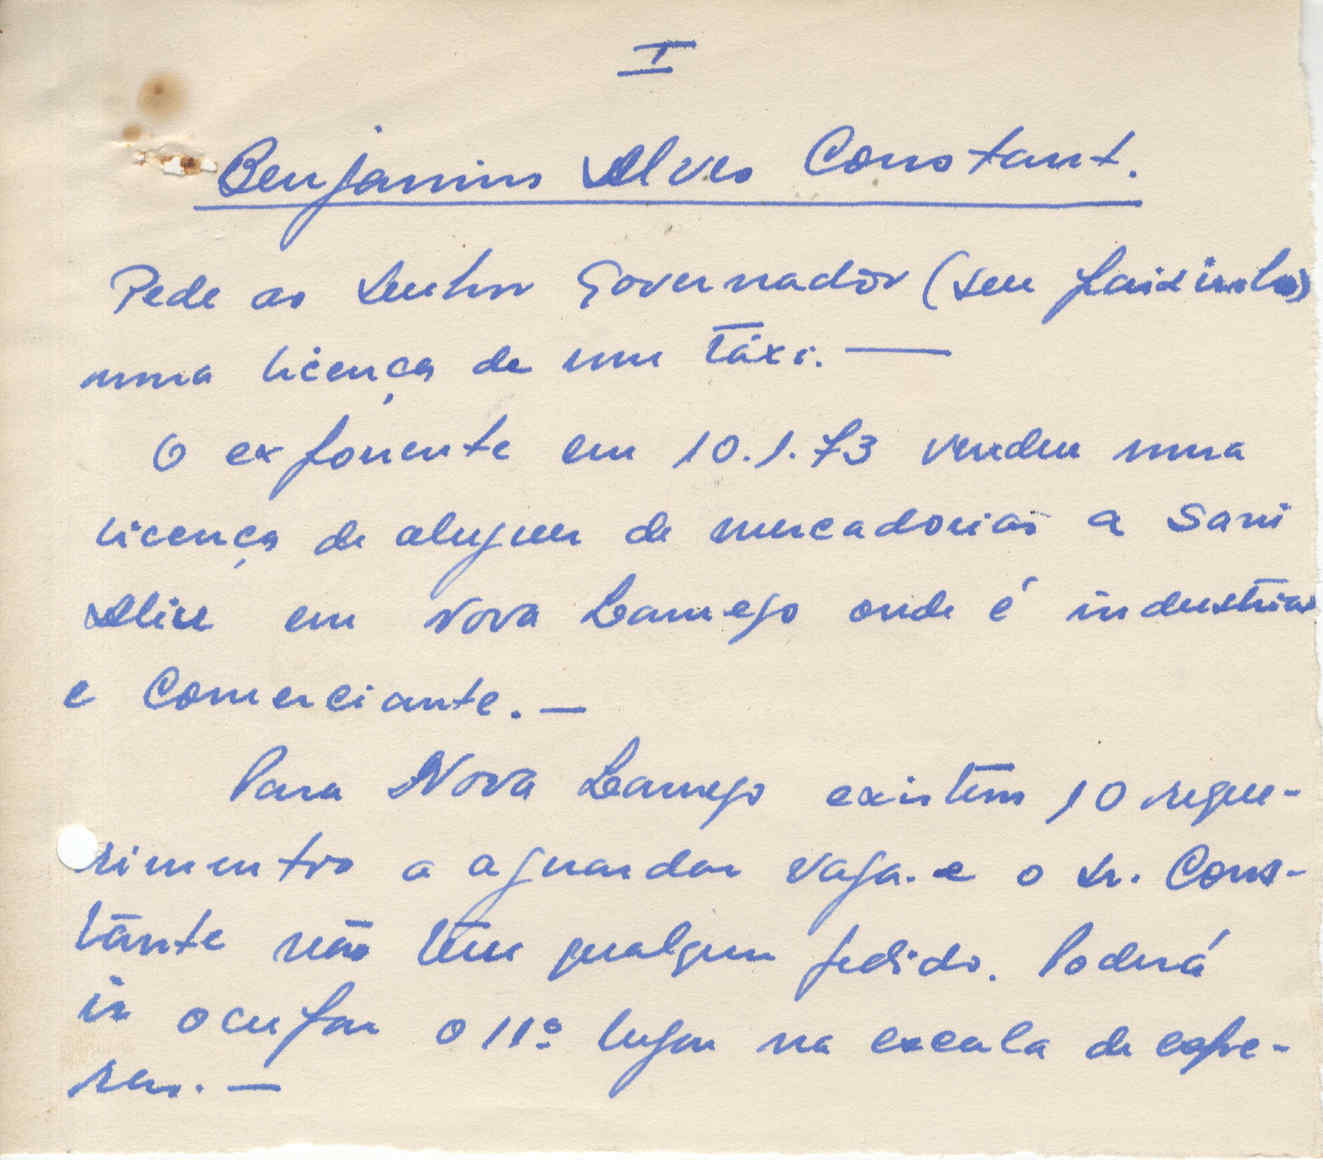 I
Benjamim Alves Constant.
Pede ao Senhor Governador (seu paisinho)
uma licença de um táxi. —
O exponente em 10.1.73 vendeu uma
licença de aluguer de mercadorias a Sani
Aliu em Nova Lamego onde é industrial
e Comerciante. —
Para Nova Lamego existem 10 reque-
rimentos a aguardar vaga. e o Sr. Cons-
tante não tem qualquer pedido. Poderá
ir ocupar o 11º lugar na escala de espe-